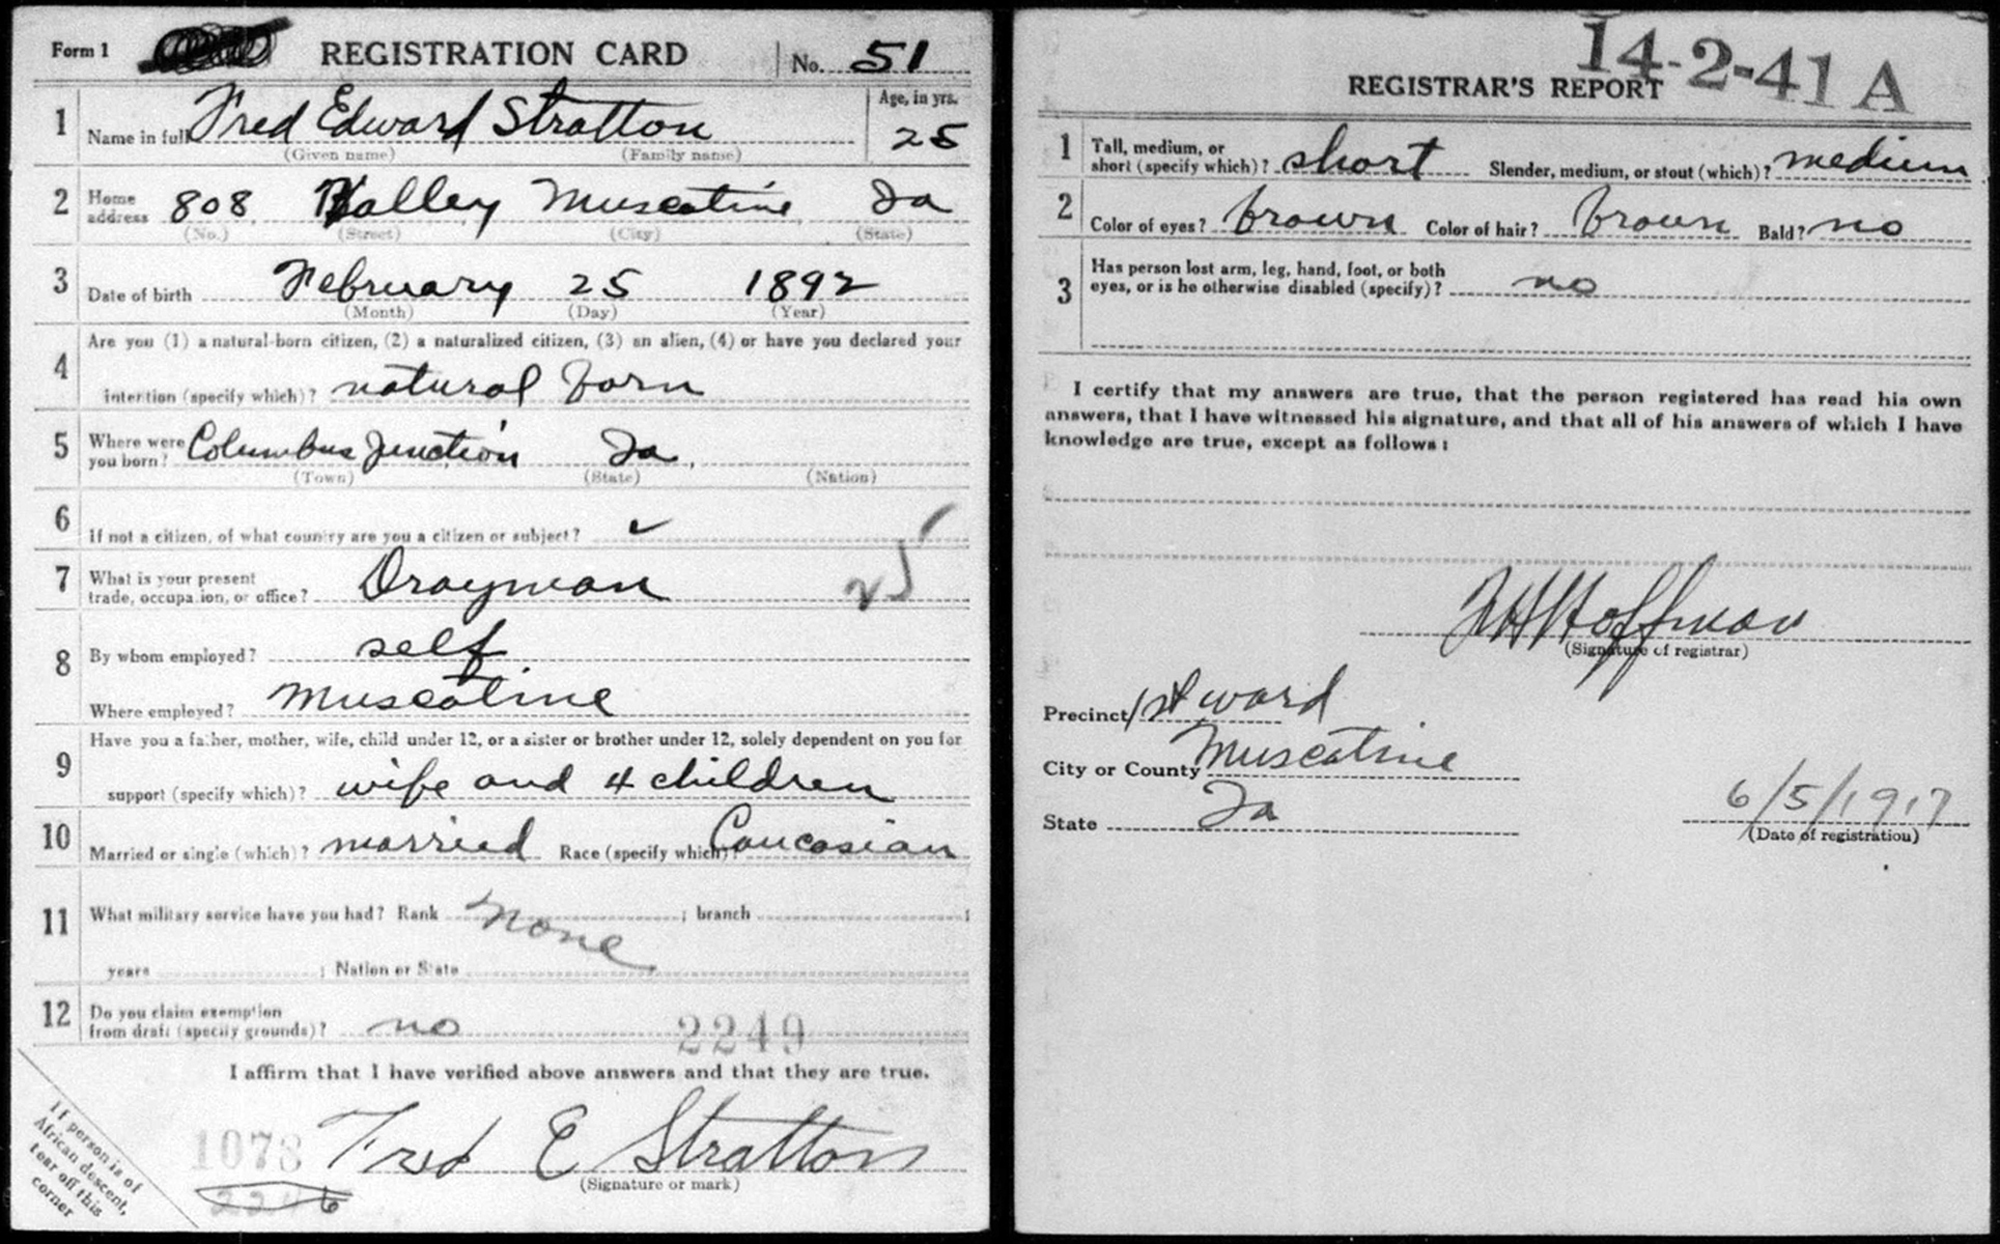 Form 1 REGISTRATION CARD No. 51
1 Name in full Fred Edward Stratton Age, in yrs. 25
(Given name) (Family name)
2 Home address 808 Valley Muscatine Ia
(No.) (Street) (City) (State)
3 Date of birth February 25 1892
(Month) (Day) (Year)
4 Are you (1) a natural-born citizen, (2) a naturalized citizen, (3) an alien, (4) or have you declared your
intention (specify which)? natural born
5 Where were you born? Columbus Junction Ia.
(Town) (State) (Nation)
6 If not a citizen, of what country are you a citizen or subject? ✓
7 What is your present
trade, occupation, or office? Drayman 25
8 By whom employed? self
Where employed? Muscatine
9 Have you a father, mother, wife, child under 12, or a sister or brother under 12, solely dependent on you for
support (specify which)? wife and 4 children
10 Married or single (which)? married Race (specify which)? Caucasian
11 What military service have you had? Rank None ; branch ;
years ; Nation or State
12 Do you claim exemption
from draft (specify grounds)? no 2249
I affirm that I have verified above answers and that they are true.
1073 Fred E Stratton
(Signature or mark)
If person is of
African descent,
tear off this
corner
14-2-41 A
REGISTRAR'S REPORT
1 Tall, medium, or
short (specify which)? short Slender, medium, or stout (which)? medium
2 Color of eyes? brown Color of hair? brown Bald? no
3 Has person lost arm, leg, hand, foot, or both
eyes, or is he otherwise disabled (specify)? no
I certify that my answers are true, that the person registered has read his own
answers, that I have witnessed his signature, and that all of his answers of which I have
knowledge are true, except as follows:
Hoffman
(Signature of registrar)
Precinct 1st ward
City or County Muscatine
State Ia 6/5/1917
(Date of registration)